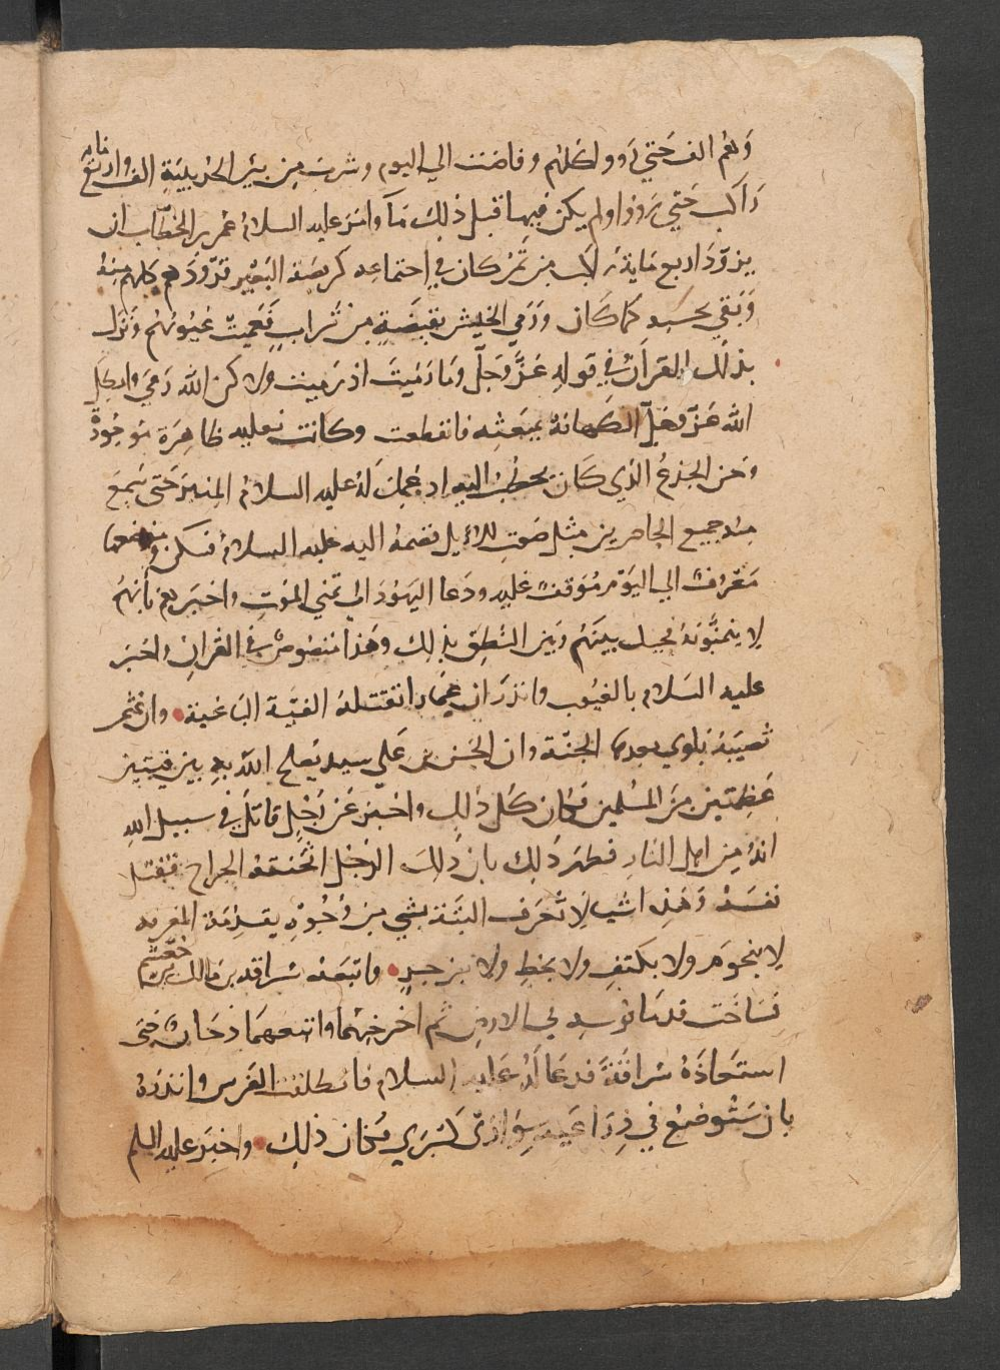 وهم الف حتي رووا كلهم وفاضت الي اليوم وشرب من بير الحديبية الف واربع مايه
راكب حتي رووا ولم يكن فيها قبل ذلك مآ وامر عليه السلام عمر بن الخطاب ان
يزود اربع ماية راكب من تمر كان في اجتماعه كربضة البعير فزودهم كلهم منه
وبقي بحسبه كما كان ورمي الجيش بقبضة من تراب فعميت عيونهم ونزل
بذلك القرآن في قوله عز وجل وما رميت اذ رميت ولاكن الله رمي وابطل
الله عز وجل الكهانة بمبعثه فانقطعت وكانت بعليه ظاهرة موجودة
وحن الجذع الذي كان يخطب اليه اذ عمل له عليه السلام المنبر حتى سمع
منه جميع الحاضرين مثل صوت الابل فضمه اليه عليه السلام فسكن وموضعها
معروف الي اليوم موقف عليه ودعا اليهود الى تمني الموت واخبرهم بانهم
لا يتمنونه فحيل بينهم وبين النطق بذلك وهذا منصوص في القران واخبر
عليه السلام بالغيوب وانذر ان عمارا تقتله الفية الباغية وان عثمن
تصيبه بلوي بعدها الجنة وان الحسن بن علي سيد يصلح الله به بين فيتين
عظيمتين من المسلمين فكان كل ذلك واخبر عن رجل قاتل في سبيل الله
انه من اهل النار فظهر ذلك بان ذلك الرجل اثخنته الجراح فقتل
نفسه وهذه اشيا لا تعرف البتة بشي من وجوه يقدمة المعرفه
لا بنجوم ولا بكتف ولا بخط ولا بزجر واتبعه سراقه بن مالك بن جعشم
فساخت قدما فرسه في الارض ثم اخرجهما واتبعهما دخان حتى
استعاذه سراقة فدعا له عليه السلام فانطلقت الفرس وانذره
بان ستوضع في ذراعيه سواري كسري فكان ذلك واخبر عليه السلم